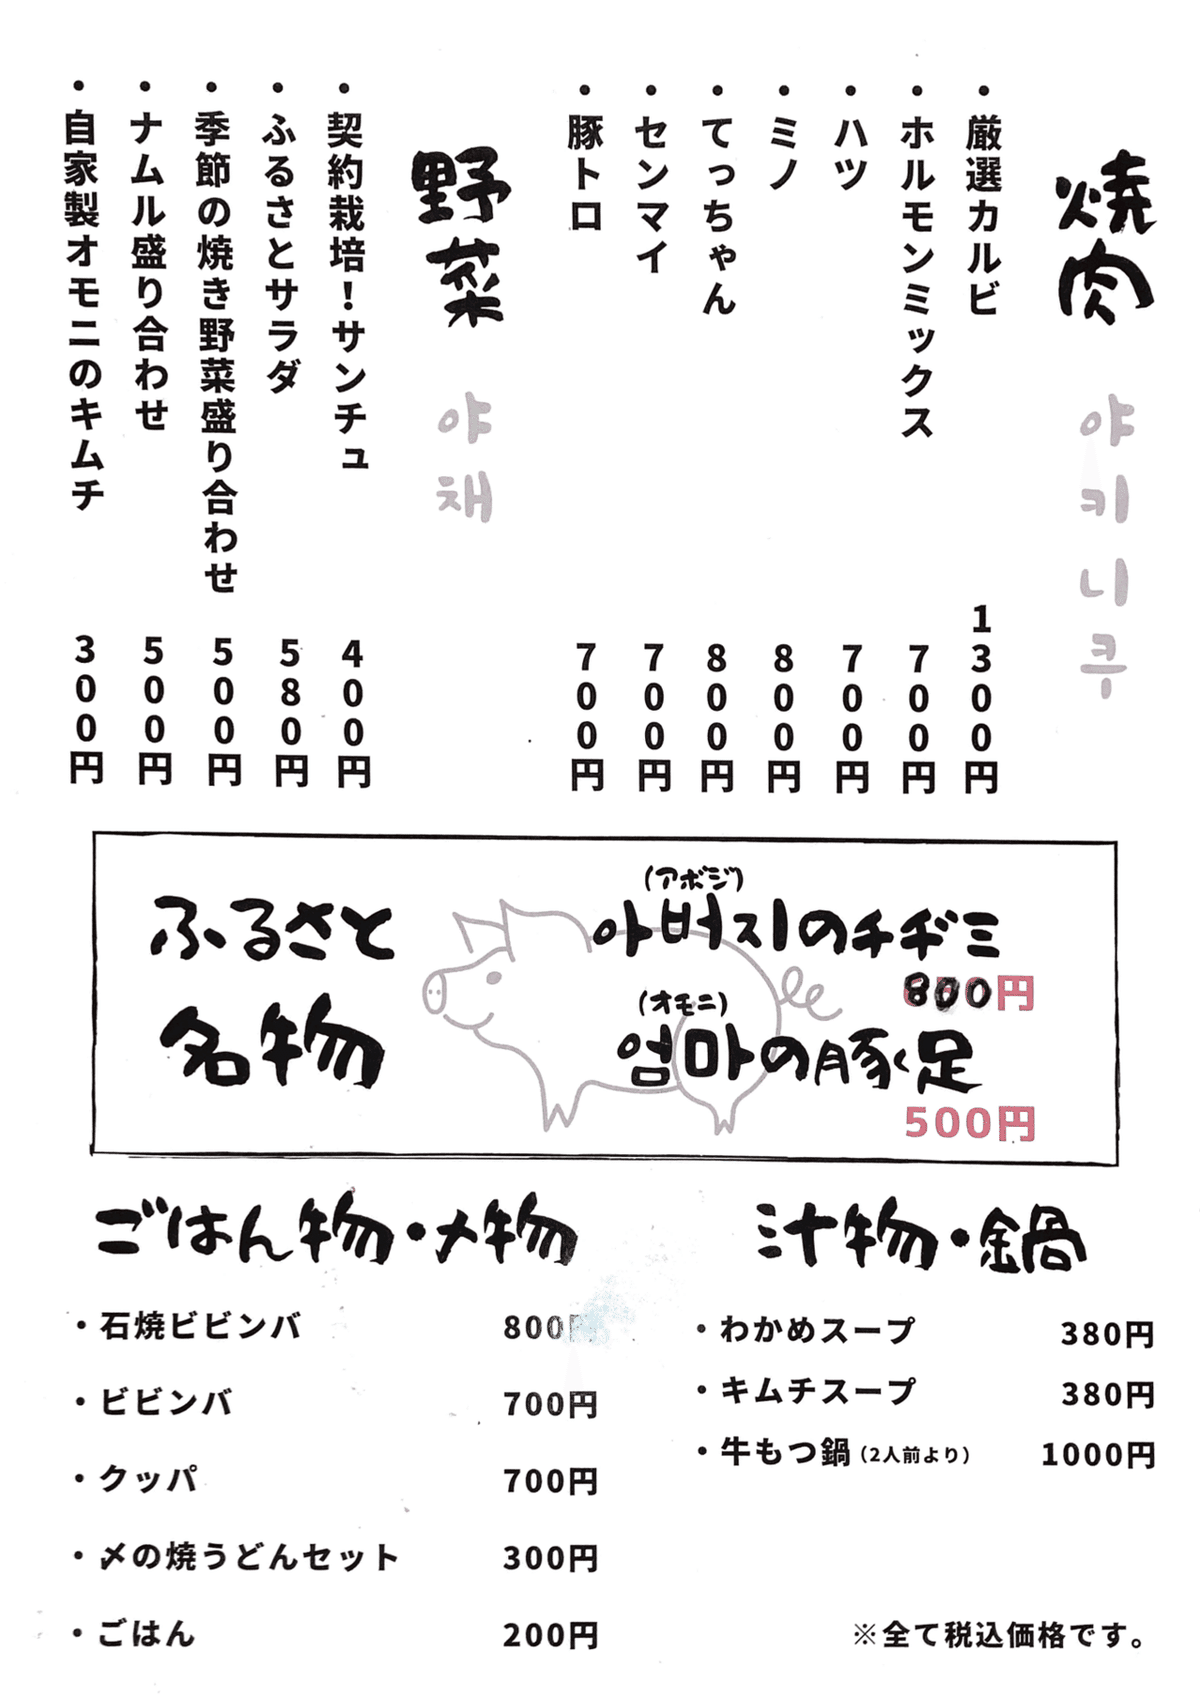 焼肉 야키니쿠
・厳選カルビ 1300円
・ホルモンミックス 700円
・ハツ 700円
・ミノ 800円
・てっちゃん 800円
・センマイ 700円
・豚トロ 700円
野菜 야채
・契約栽培！サンチュ 400円
・ふるさとサラダ 580円
・季節の焼き野菜盛り合わせ 500円
・ナムル盛り合わせ 500円
・自家製オモニのキムチ 300円
ふるさと
名物
(アボジ)
아버지のチヂミ
800円
(オモニ)
엄마の豚足
500円
ごはん物・〆物
・石焼ビビンバ 800円
・ビビンバ 700円
・クッパ 700円
・〆の焼うどんセット 300円
・ごはん 200円
汁物・鍋
・わかめスープ 380円
・キムチスープ 380円
・牛もつ鍋（2人前より） 1000円
※全て税込価格です。